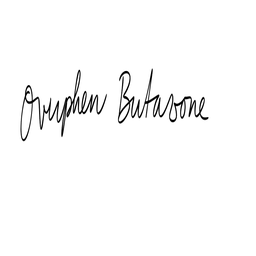 Ovuphen Butasone